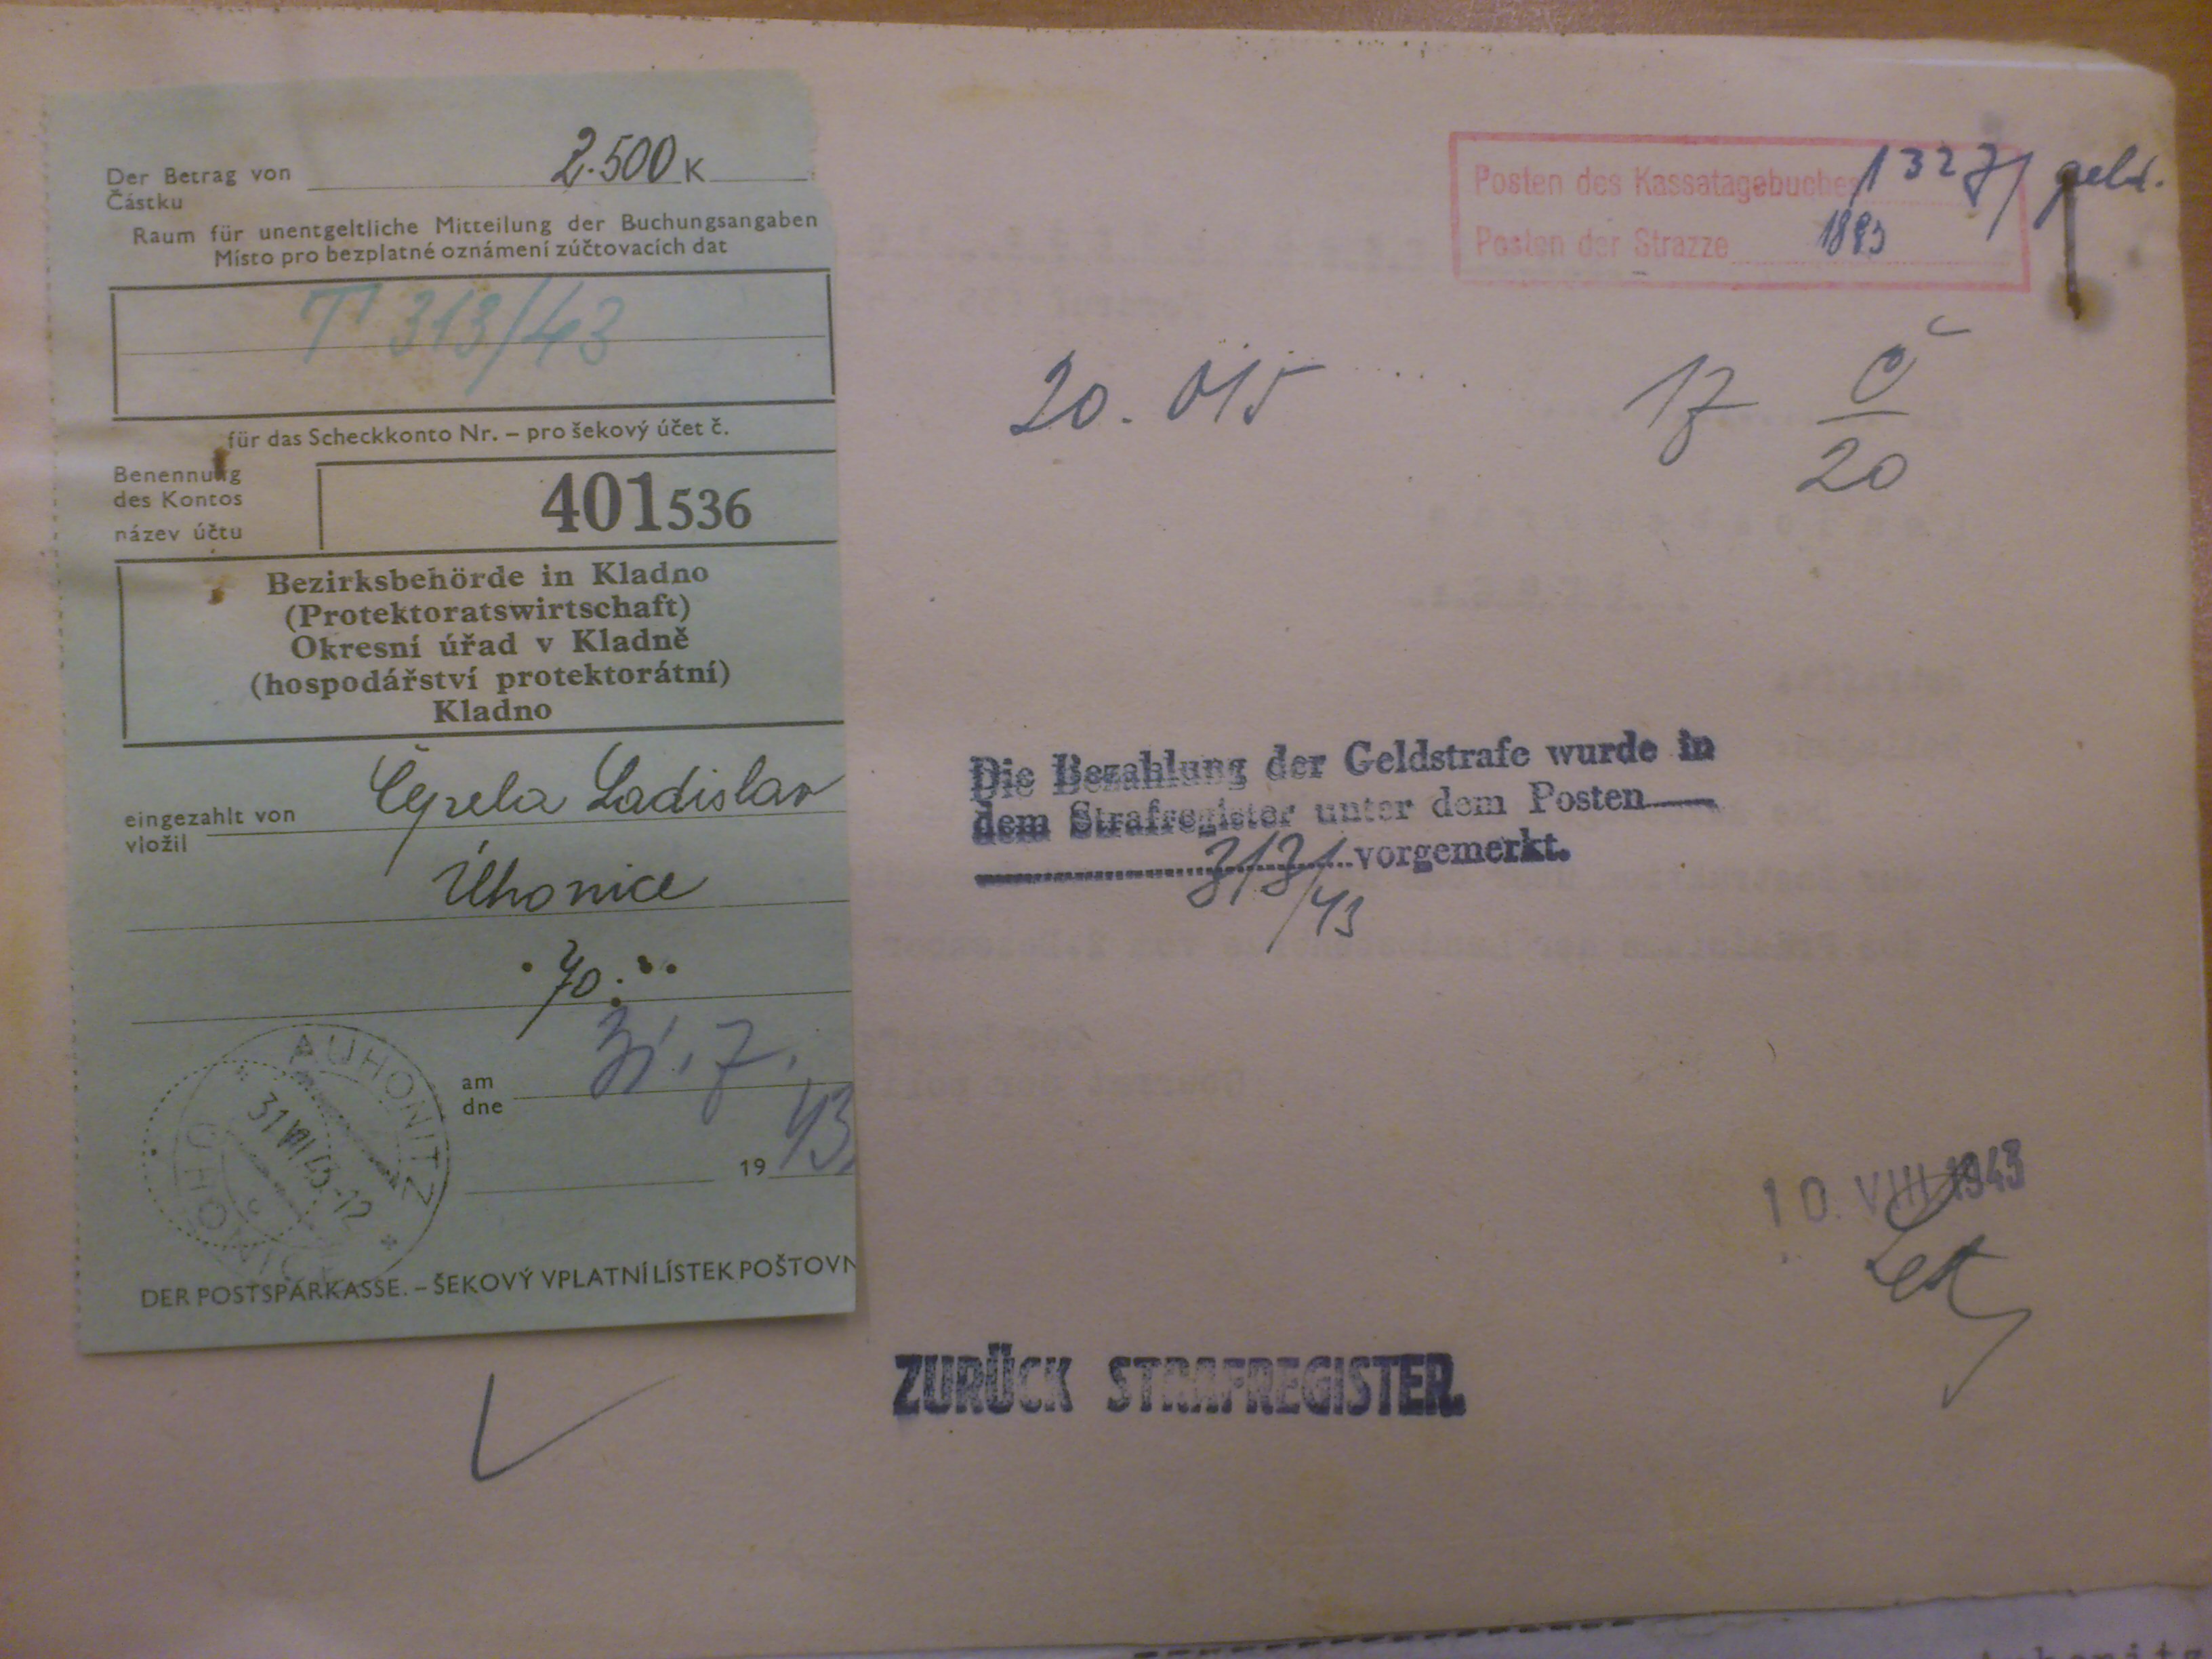 Der Betrag von 2.500 K
Částku
Raum für unentgeltliche Mitteilung der Buchungsangaben
Místo pro bezplatné oznámení zúčtovacích dat
T 313/43
für das Scheckkonto Nr. – pro šekový účet č.
Benennung
des Kontos
název účtu
401536
Bezirksbehörde in Kladno
(Protektoratswirtschaft)
Okresní úřad v Kladně
(hospodářství protektorátní)
Kladno
eingezahlt von
vložil
Ladislav
Úhonice
70
am
dne
31. 7.
1943
AUHONITZ
ÚHONICE
DER POSTSPARKASSE. – ŠEKOVÝ VPLATNÍ LÍSTEK POŠTOVN
Posten des Kassatagebuches 1327/
Posten der Strazze 1893
20. 17 20
Die Bezahlung der Geldstrafe wurde in
dem Strafregister unter dem Posten
vorgemerkt.
/43
10. VIII 1943
ZURÜCK STRAFREGISTER.